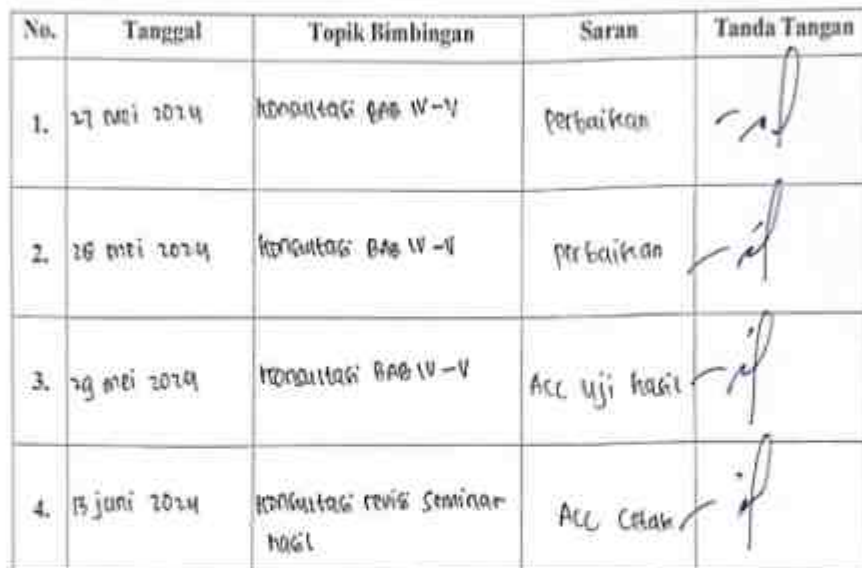 No. Tanggal Topik Bimbingan Saran Tanda Tangan
1. 27 mei 2024 Konsultasi BAB IV-V perbaikan
2. 28 mei 2024 Konsultasi BAB IV-V perbaikan
3. 29 mei 2024 Konsultasi BAB IV-V Acc uji hasil
4. 13 juni 2024 Konsultasi revisi seminar Acc Cetak
hasil